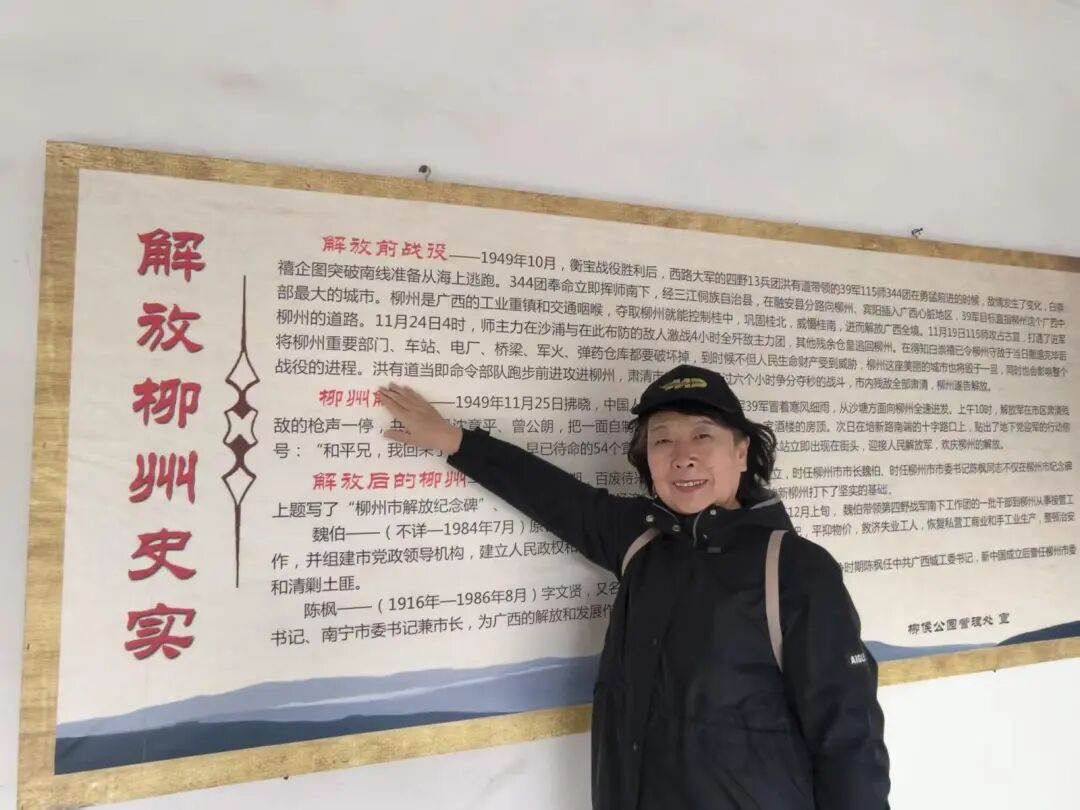 解放柳州史实
解放前战役——1949年10月，衡宝战役胜利后，西路大军的四野13兵团洪有道带领的39军115师344团在勇猛前进的时候，敌情发生了变化，白崇
禧企图突破南线准备从海上逃跑。344团奉命立即挥师南下，经三江侗族自治县，在融安县分路向柳州、宾阳插入广西心脏地区，39军目标直指柳州这个广西中
部最大的城市。柳州是广西的工业重镇和交通咽喉，夺取柳州就能控制桂中，巩固桂北，威慑桂南，进而解放广西全境。11月19日115师攻占古宜，打通了进军
柳州的道路。11月24日4时，师主力在沙浦与在此布防的敌人激战4小时全歼敌主力团，其他残余仓皇逃回柳州。在得知白崇禧已令柳州守敌于当日撤退完毕后
将柳州重要部门、车站、电厂、桥梁、军火、弹药仓库都要破坏掉，到时候不但人民生命财产受到威胁，柳州这座美丽的城市也将毁于一旦，同时也会影响整个
战役的进程。洪有道当即命令部队跑步前进攻进柳州，肃清市 过六个小时争分夺秒的战斗，市内残敌全部肃清，柳州遂告解放。
柳州 ——1949年11月25日拂晓，中国人 39军冒着寒风细雨，从沙塘方面向柳州全速进发。上午10时，解放军在市区肃清残
敌的枪声一停， 沈章平、曾公朗，把一面自制 酒楼的房顶。次日在培新路南端的十字路口上，贴出了地下党迎军的行动信
号：“和平兄，我回来了 早已待命的54个宣 水站立即出现在街头，迎接人民解放军，欢庆柳州的解放。
解放后的柳州 期，百废待 立，时任柳州市市长魏伯、时任柳州市市委书记陈枫同志不仅在柳州市纪念碑
上题写了“柳州市解放纪念碑”、 新柳州打下了坚实的基础。
魏伯——（不详—1984年7月）原 12月上旬，魏伯带领第四野战军南下工作团的一批干部到柳州从事接管工
作，并组建市党政领导机构，建立人民政权和 ，平抑物价，救济失业工人，恢复私营工商业和手工业生产，整顿治安
和清剿土匪。
陈枫——（1916年—1986年8月）字文贤，又名 时期陈枫任中共广西城工委书记，新中国成立后曾任柳州市委
书记、南宁市委书记兼市长，为广西的解放和发展作
柳侯公园管理处 宣
AIGL